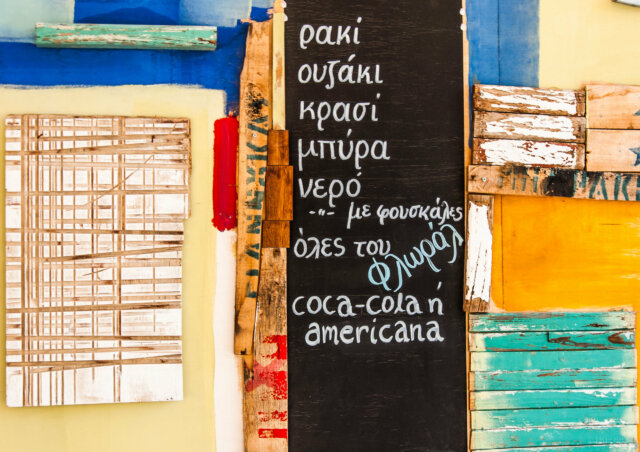 ρακί
ουζάκι
κρασί
μπύρα
νερό
-"- με φουσκάλες
όλες του Φλωράλ
coca-cola ή
americana